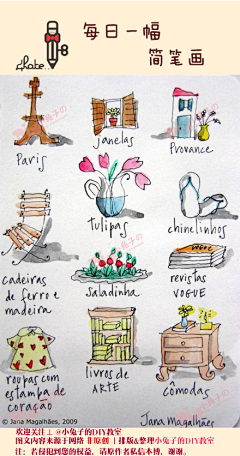 skate.
每日一幅
简笔画
Paris
janelas
Provance
tulipas
chinelinhos
cadeiras
de ferro e
madeira
saladinha
revistas
VOGUE
VOGUE
roupas com
estampa de
coração
livros de
ARTE
cômodas
© Jana Magalhães, 2009
Jana Magalhães
欢迎关注 @小兔子的DIY教室
图文内容来源于网络 非原创 | 排版&整理小兔子的DIY教室
注：若侵犯到您的权益，请原作者私信本博，谢谢。